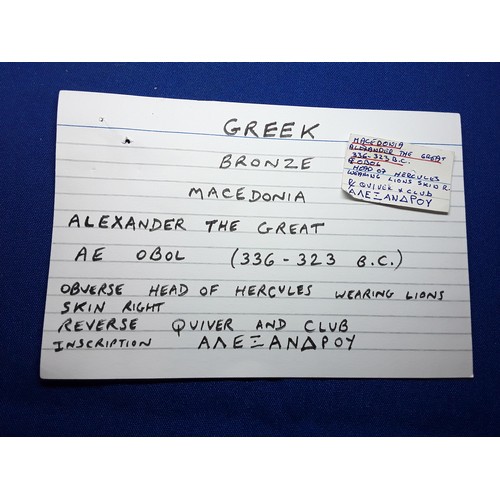 GREEK
BRONZE
MACEDONIA
ALEXANDER THE GREAT
AE OBOL (336-323 B.C.)
OBVERSE HEAD OF HERCULES WEARING LIONS
SKIN RIGHT
REVERSE QUIVER AND CLUB
INSCRIPTION ΑΛΕΞΑΝΔΡΟΥ
MACEDONIA
ALEXANDER THE GREAT
336-323 B.C.
Æ OBOL
HEAD OF HERCULES
WEARING LIONS SKIN R.
QUIVER & CLUB
ΑΛΕΞΑΝΔΡΟΥ